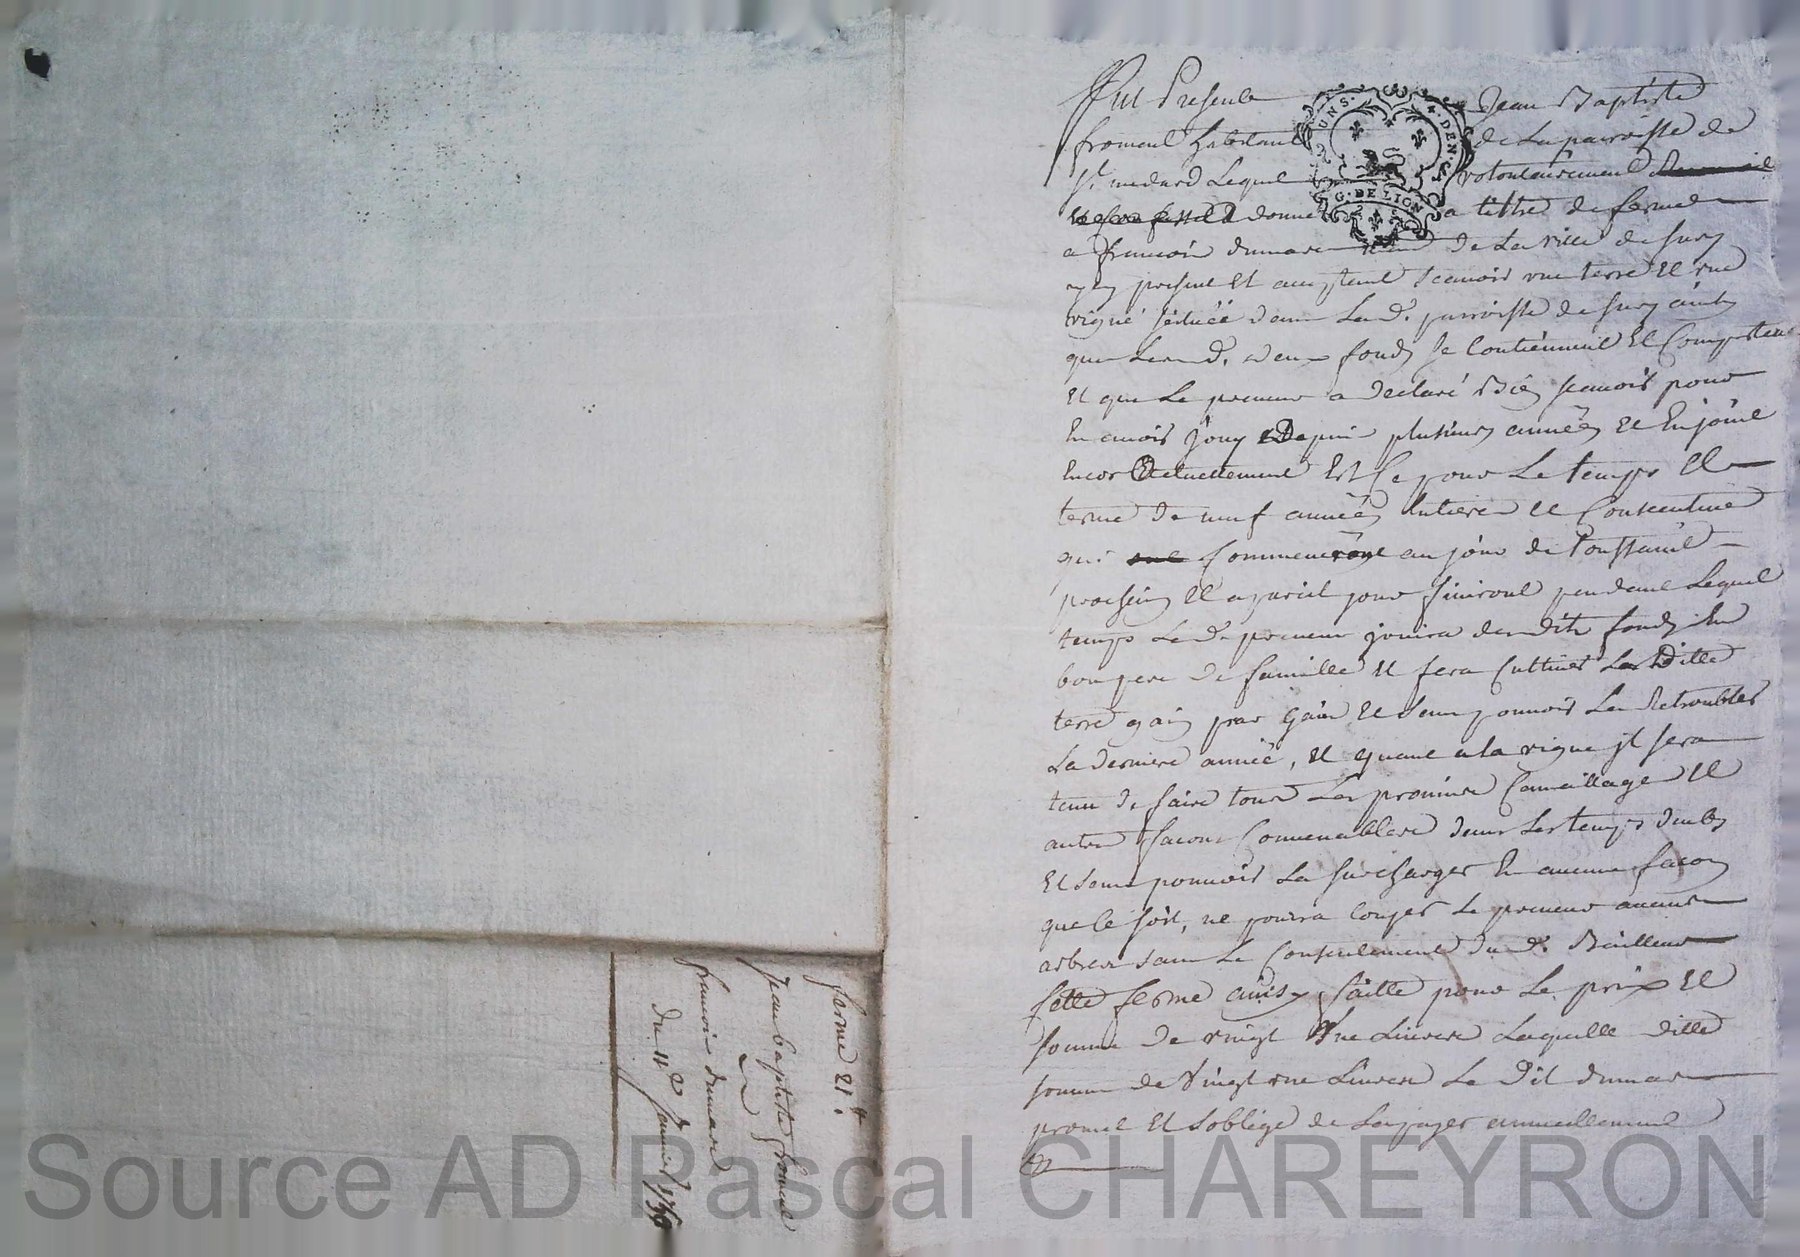 farme 21ᵗᵗ.
Jean baptiste froment
a
françois dumare
du 11ᵉ Janvier 1750
Fut Present Jean Baptiste
froment habitant de La parroisse de
Sᵗ medard Lequel volontairement
donne a tittre de ferme
a françois dumare de La ville de Sury
present Et acceptant Scavoir une terre Et une
vigne située dans La dᵉ. parroisse de Sury ainsy
que Lesd. deux fonds Se Contiennent Et Comportent
Et que Le preneur a declaré Bien scavoir pour
En avoir jouy Depuis plusieurs années Et En jouit
Encor Actuellement Et Ce pour Le temps Et
terme de neuf années Entiere Et Consecutive
qui Commenceront au jour de
prochain Et a pareil jour finiront pendant Lequel
temps Led. preneur jouira desdits fonds En
bon pere de famille Et fera Cultiver La Ditte
terre gain par gain Et sans pouvoir La Retroubler
La derniere année, Et quant a la vigne jl sera
tenu de faire tous Les provins Et
autre facons Convenablere dans Les temps deubs
Et sans pouvoir La surcharger En aucune facon
que Ce soit, ne pourra Couper Le preneur aucuns
arbres sans Le Consentement du d. Bailleur
Cette ferme ainsy faitte pour Le prix Et
somme de vingt Une Livres Laquelle ditte
somme de Vingt une Livres Le Dit dumare
promet Et soblige de La payer annuellement
UNS. DEN.
G. DE LION
Source AD Pascal CHAREYRON